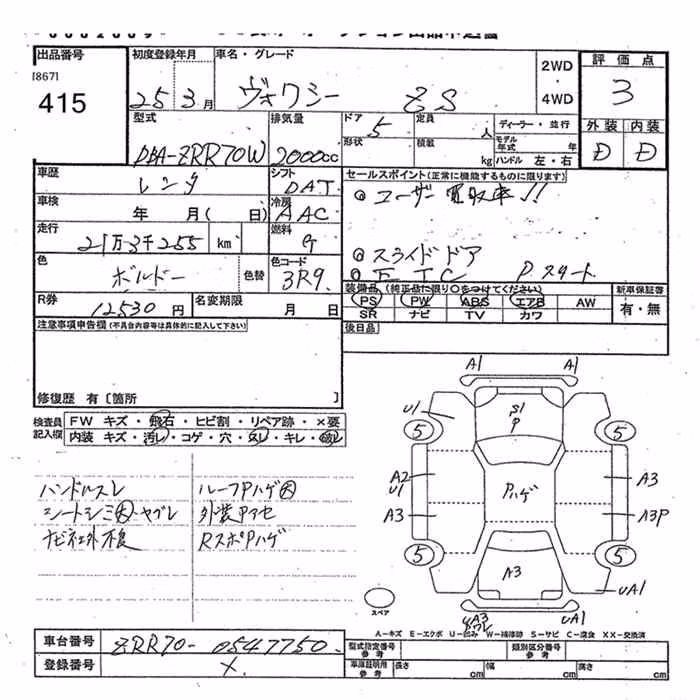 出品番号
[867]
415
初度登録年月
25 3月
車名・グレード
ヴォクシー ZS
2WD
・
4WD
評価点
3
外装 内装
D D
型式
DBA-ZRR70W
排気量
2000cc
ドア 5
形状
定員 人
積載 kg
ディーラー・並行
モデル年式 年
ハンドル 左・右
車歴
レンタ
シフト
DAT
車検
年 月( 日)
冷房
AAC
走行
21万3千255 km
燃料
G
色
ボルドー
色替
色コード
3R9.
R券
12530円
名変期限
月 日
セールスポイント(正常に機能するものに限ります)
◎ユーザー買取車!!
◎スライドドア
◎ETC P.スタート
装備品(純正品に限り○をつけてください)
PS PW ABS エアB AW
SR ナビ TV カワ
新車保証書
有・無
後日品
注意事項申告欄(不具合内容等は具体的に記入して下さい)
修復歴 有〔箇所 〕
検査員記入欄
FW キズ・飛石・ヒビ割・リペア跡・×要
内装 キズ・汚レ・コゲ・穴・スレ・キレ・破レ
ハンドルスレ
シートシミ大・ヤブレ
ナビ社外不良
ルーフPハゲ大
外装Pアセ
RスポPハゲ
A1
A1
U1
S1
P
5
5
A2
U1
A3
Pハゲ
A3
A3P
5
5
A3
UA1
A3
ワレ
UA1
スペア
A-キズ E-エクボ U-凹み W-補修跡 S-サビ C-腐食 XX-交換済
車台番号
ZRR70-0547750.
登録番号
×.
型式指定番号
参考
類別区分番号
参考
車庫証明用
参考
長さ cm
幅 cm
高さ cm